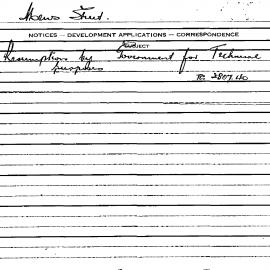 Mews Street
NOTICES — DEVELOPMENT APPLICATIONS — CORRESPONDENCE
SUBJECT
Resumption by Government for Technical
purposes
TC 2807.40